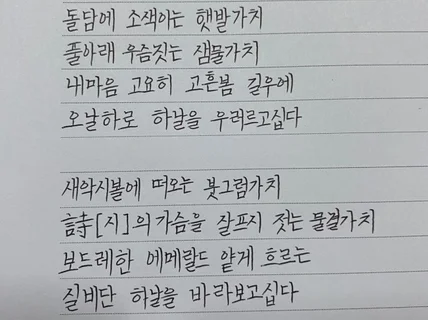 돌담에 소색이는 햇발가치
풀아래 우슴짓는 샘물가치
내마음 고요히 고흔봄 길우에
오날하로 하날을 우러르고십다
새악시볼에 떠오는 붓그럼가치
詩[시]의가슴을 살프시 젓는 물결가치
보드레한 에메랄드 얄게 흐르는
실비단 하날을 바라보고십다